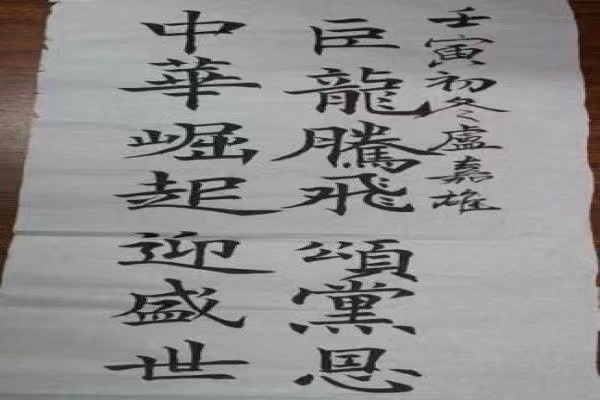 中華崛起迎盛世
巨龍騰飛頌黨恩
壬寅初冬盧嘉雄